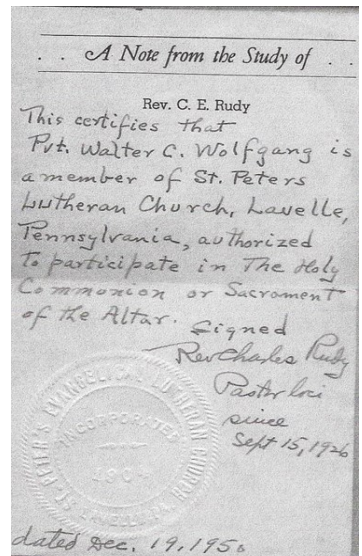 . . A Note from the Study of . .
Rev. C. E. Rudy
This certifies that
Pvt. Walter C. Wolfgang is
a member of St. Peters
Lutheran Church, Lavelle,
Pennsylvania, authorized
to participate in The Holy
Communion or Sacrament
of the Altar. Signed
Rev Charles Rudy
Pastor loci
since
Sept 15, 1926
ST. PETER'S EVANGELICAL LUTHERAN CHURCH
INCORPORATED
dated Dec. 19, 1950